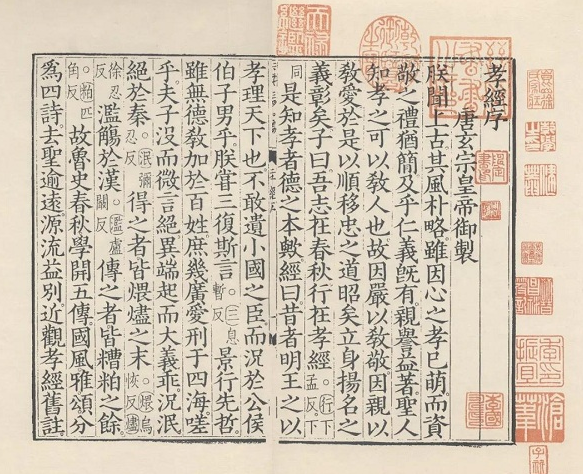 孝經序
唐玄宗皇帝御製
朕聞上古其風朴略雖因心之孝已萌而資
敬之禮猶簡及乎仁義旣有親譽益著聖人
知孝之可以敎人也故因嚴以敎敬因親以
敎愛於是以順移忠之道昭矣立身揚名之
義彰矣子曰吾志在春秋行在孝經。行下孟反下
同是知孝者德之本歟經曰昔者明王之以
孝理天下也不敢遺小國之臣而況於公侯
伯子男乎朕嘗三復斯言。三息暫反景行先哲
雖無德敎加於百姓庶幾廣愛刑于四海嗟
乎夫子沒而微言絕異端起而大義乖況泯
絕於秦。泯彌忍反得之者皆煨燼之末。煨烏恢反燼
徐忍反濫觴於漢。濫盧闞反傳之者皆糟粕之餘。
粕匹角反故魯史春秋學開五傳。國風雅頌分
爲四詩。去聖逾遠。源流益別。近觀孝經舊註。